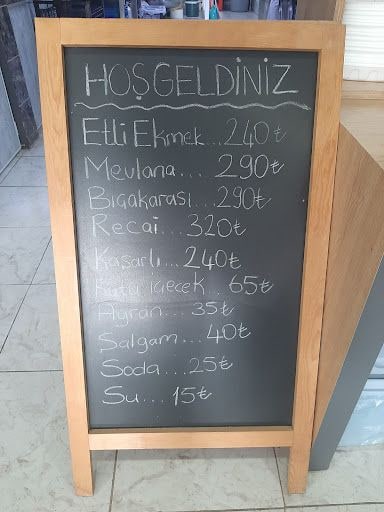 HOŞGELDİNİZ
Etli Ekmek...240₺
Mevlana....290₺
Bıçakarası...290₺
Recai...320₺
Kaşarlı...240₺
Kutu içecek...65₺
Ayran...35₺
Şalgam...40₺
Soda...25₺
Su...15₺